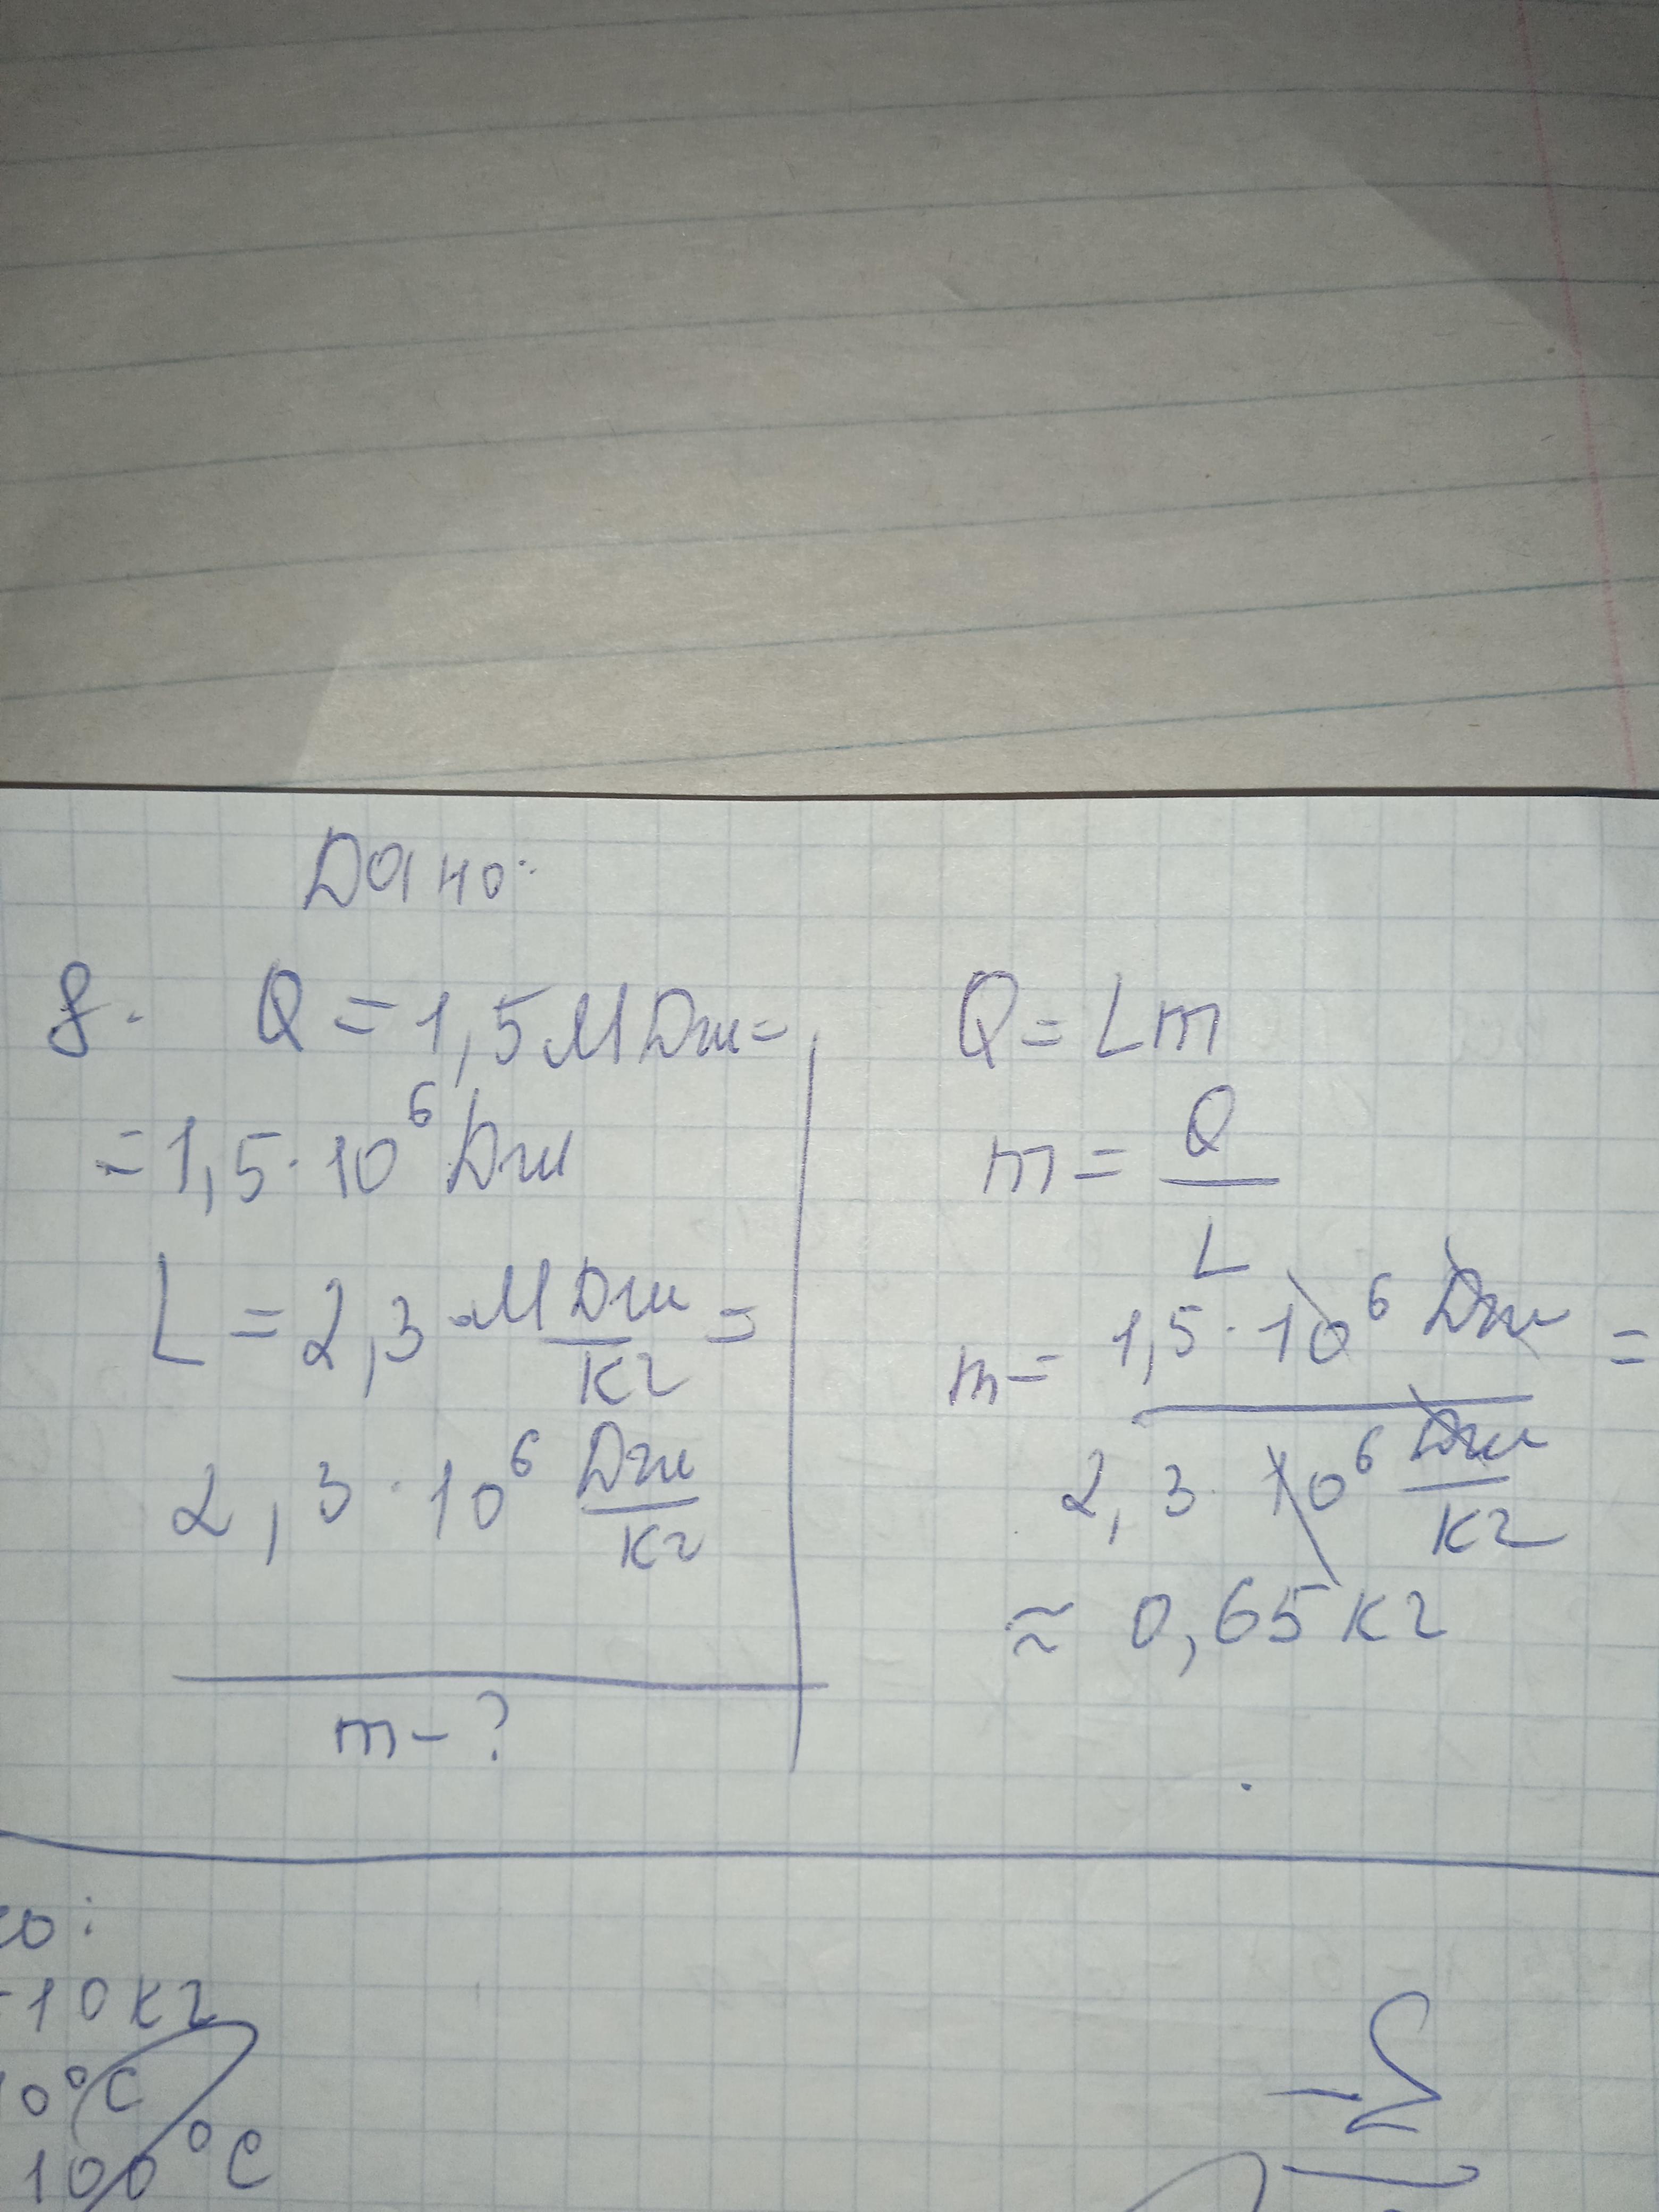 Дано:
8. Q = 1,5 МДж =
= 1,5 · 10⁶ Дж
L = 2,3 МДж/кг =
2,3 · 10⁶ Дж/кг
m - ?
Q = Lm
m = Q/L
m = 1,5 · 10⁶ Дж / 2,3 · 10⁶ Дж/кг =
≈ 0,65 кг
10 кг
0°C
100°C